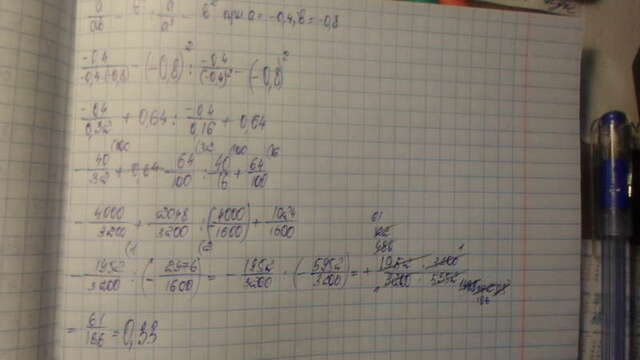 a/ab - b² : a/a² - b² при a = -0,4, b = -0,8
-0,4/-0,4·(-0,8) - (-0,8)² : -0,4/(-0,4)² - (-0,8)²
-0,4/0,32 + 0,64 : -0,4/0,16 + 0,64
- 40/32 + 0,64 64/100 : - 40/16 + 64/100
- 4000/3200 + 2048/3200 : (- 4000/1600) + 1024/1600
- 1952/3200 : (- 2976/1600) = - 1952/3200 : (- 5952/3200) = + 1952/3200 · 3200/5952
= 61/186 = 0,33